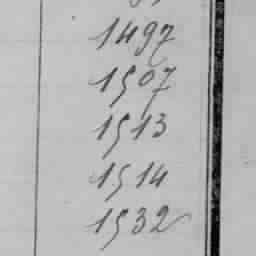 1497
1507
1513
1514
1532